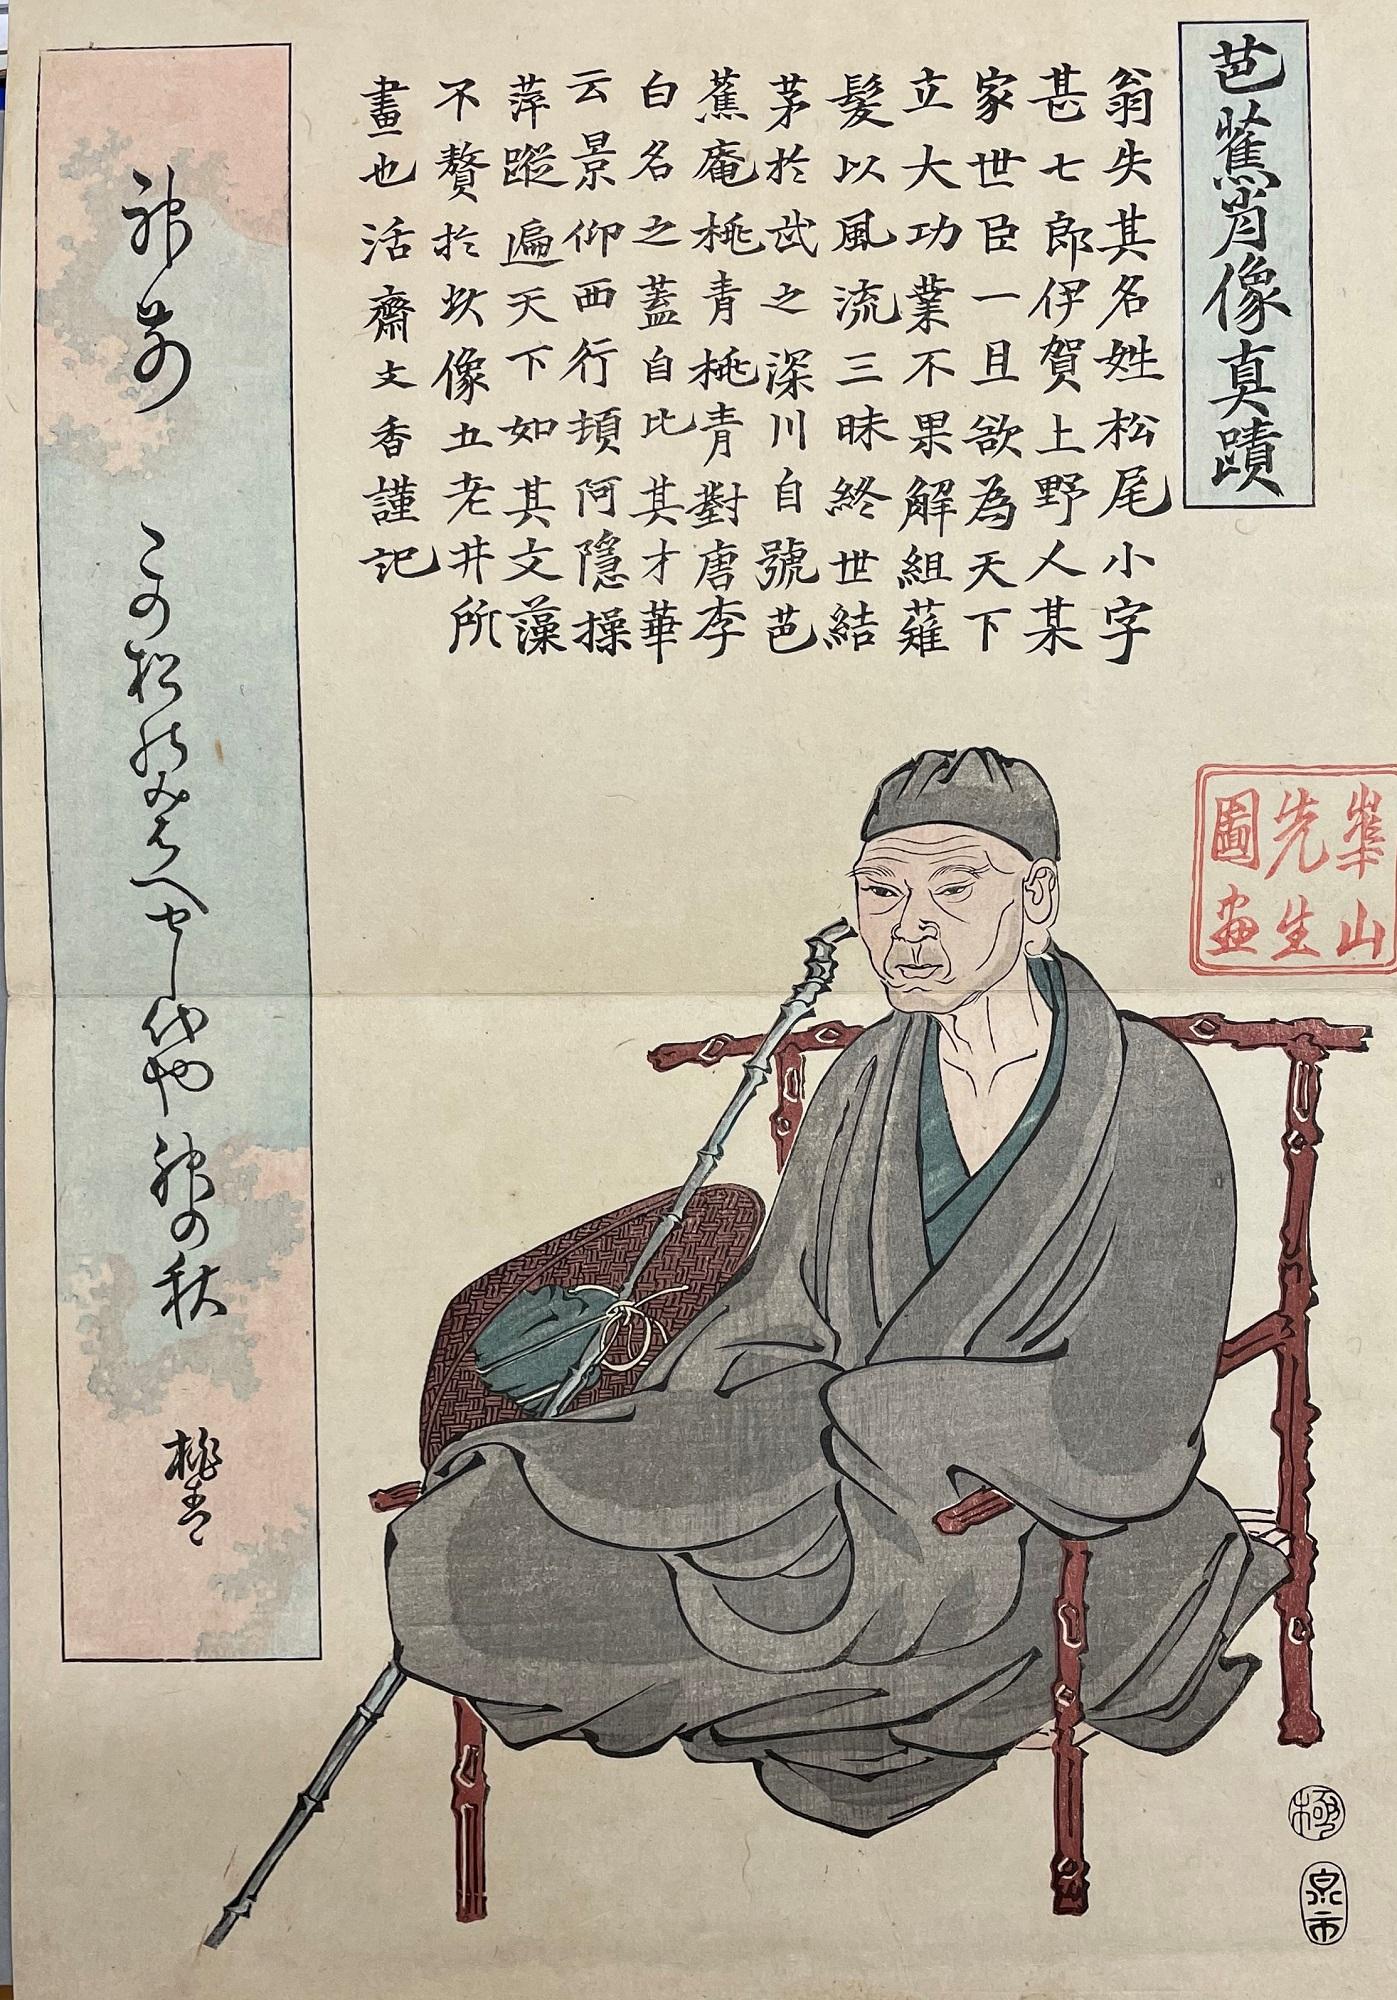 芭蕉肖像真蹟
翁失其名姓松尾小字
甚七郎伊賀上野人某
家世臣一旦欲為天下
立大功業不果解組薙
髪以風流三昧終世結
茅於武之深川自號芭
蕉庵桃青桃青對唐李
白名之蓋自比其才華
云景仰西行頓阿隠操
萍蹤遍天下如其文藻
不贅於此像五老井所
畫也活齋文香謹記
神前
この松のみはへせし代や神の秋
桃青
崋山
先生
圖画
極
泉市